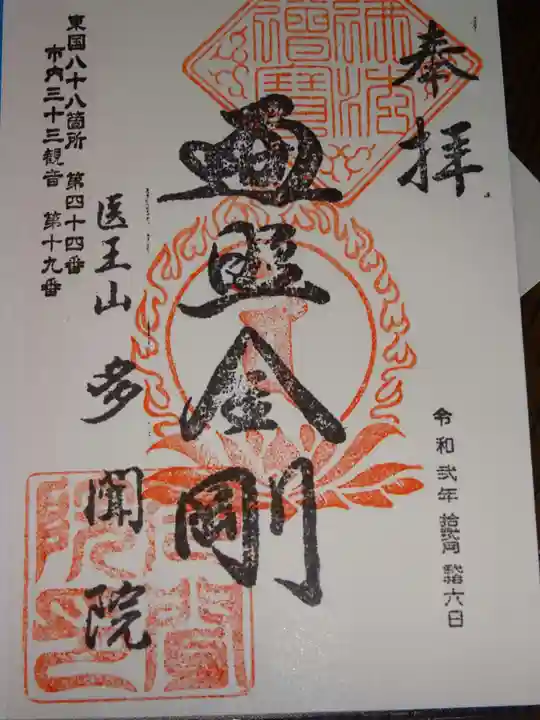 奉拝
令和弐年 拾弐月 弐拾六日
佛法僧寶
遍照金剛
医王山 多聞院
東国八十八箇所 第四十四番
市内三十三観音 第十九番